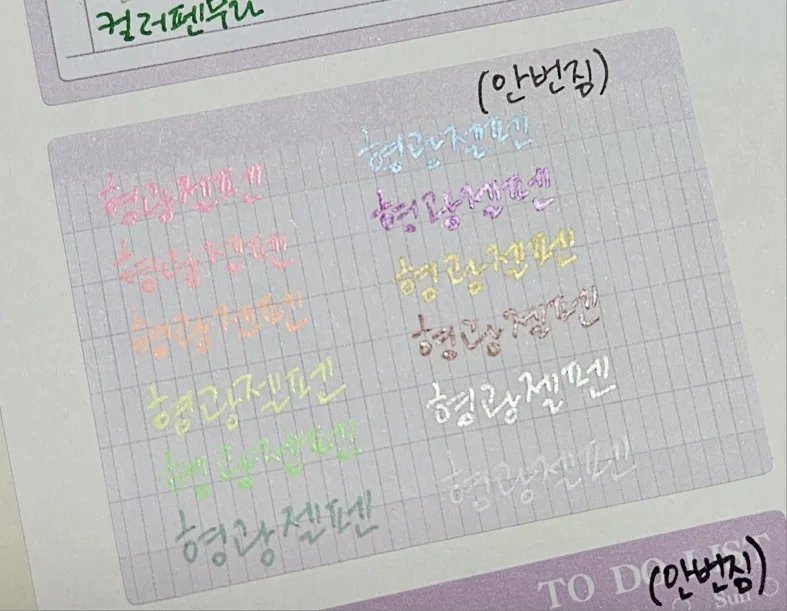 컬러펜무라
(안번짐)
형광젤펜
형광젤펜
형광젤펜
형광젤펜
형광젤펜
형광젤펜
형광젤펜
형광젤펜
형광젤펜
형광젤펜
형광젤펜
형광젤펜
TO DO LIST
(안번짐)
Sun